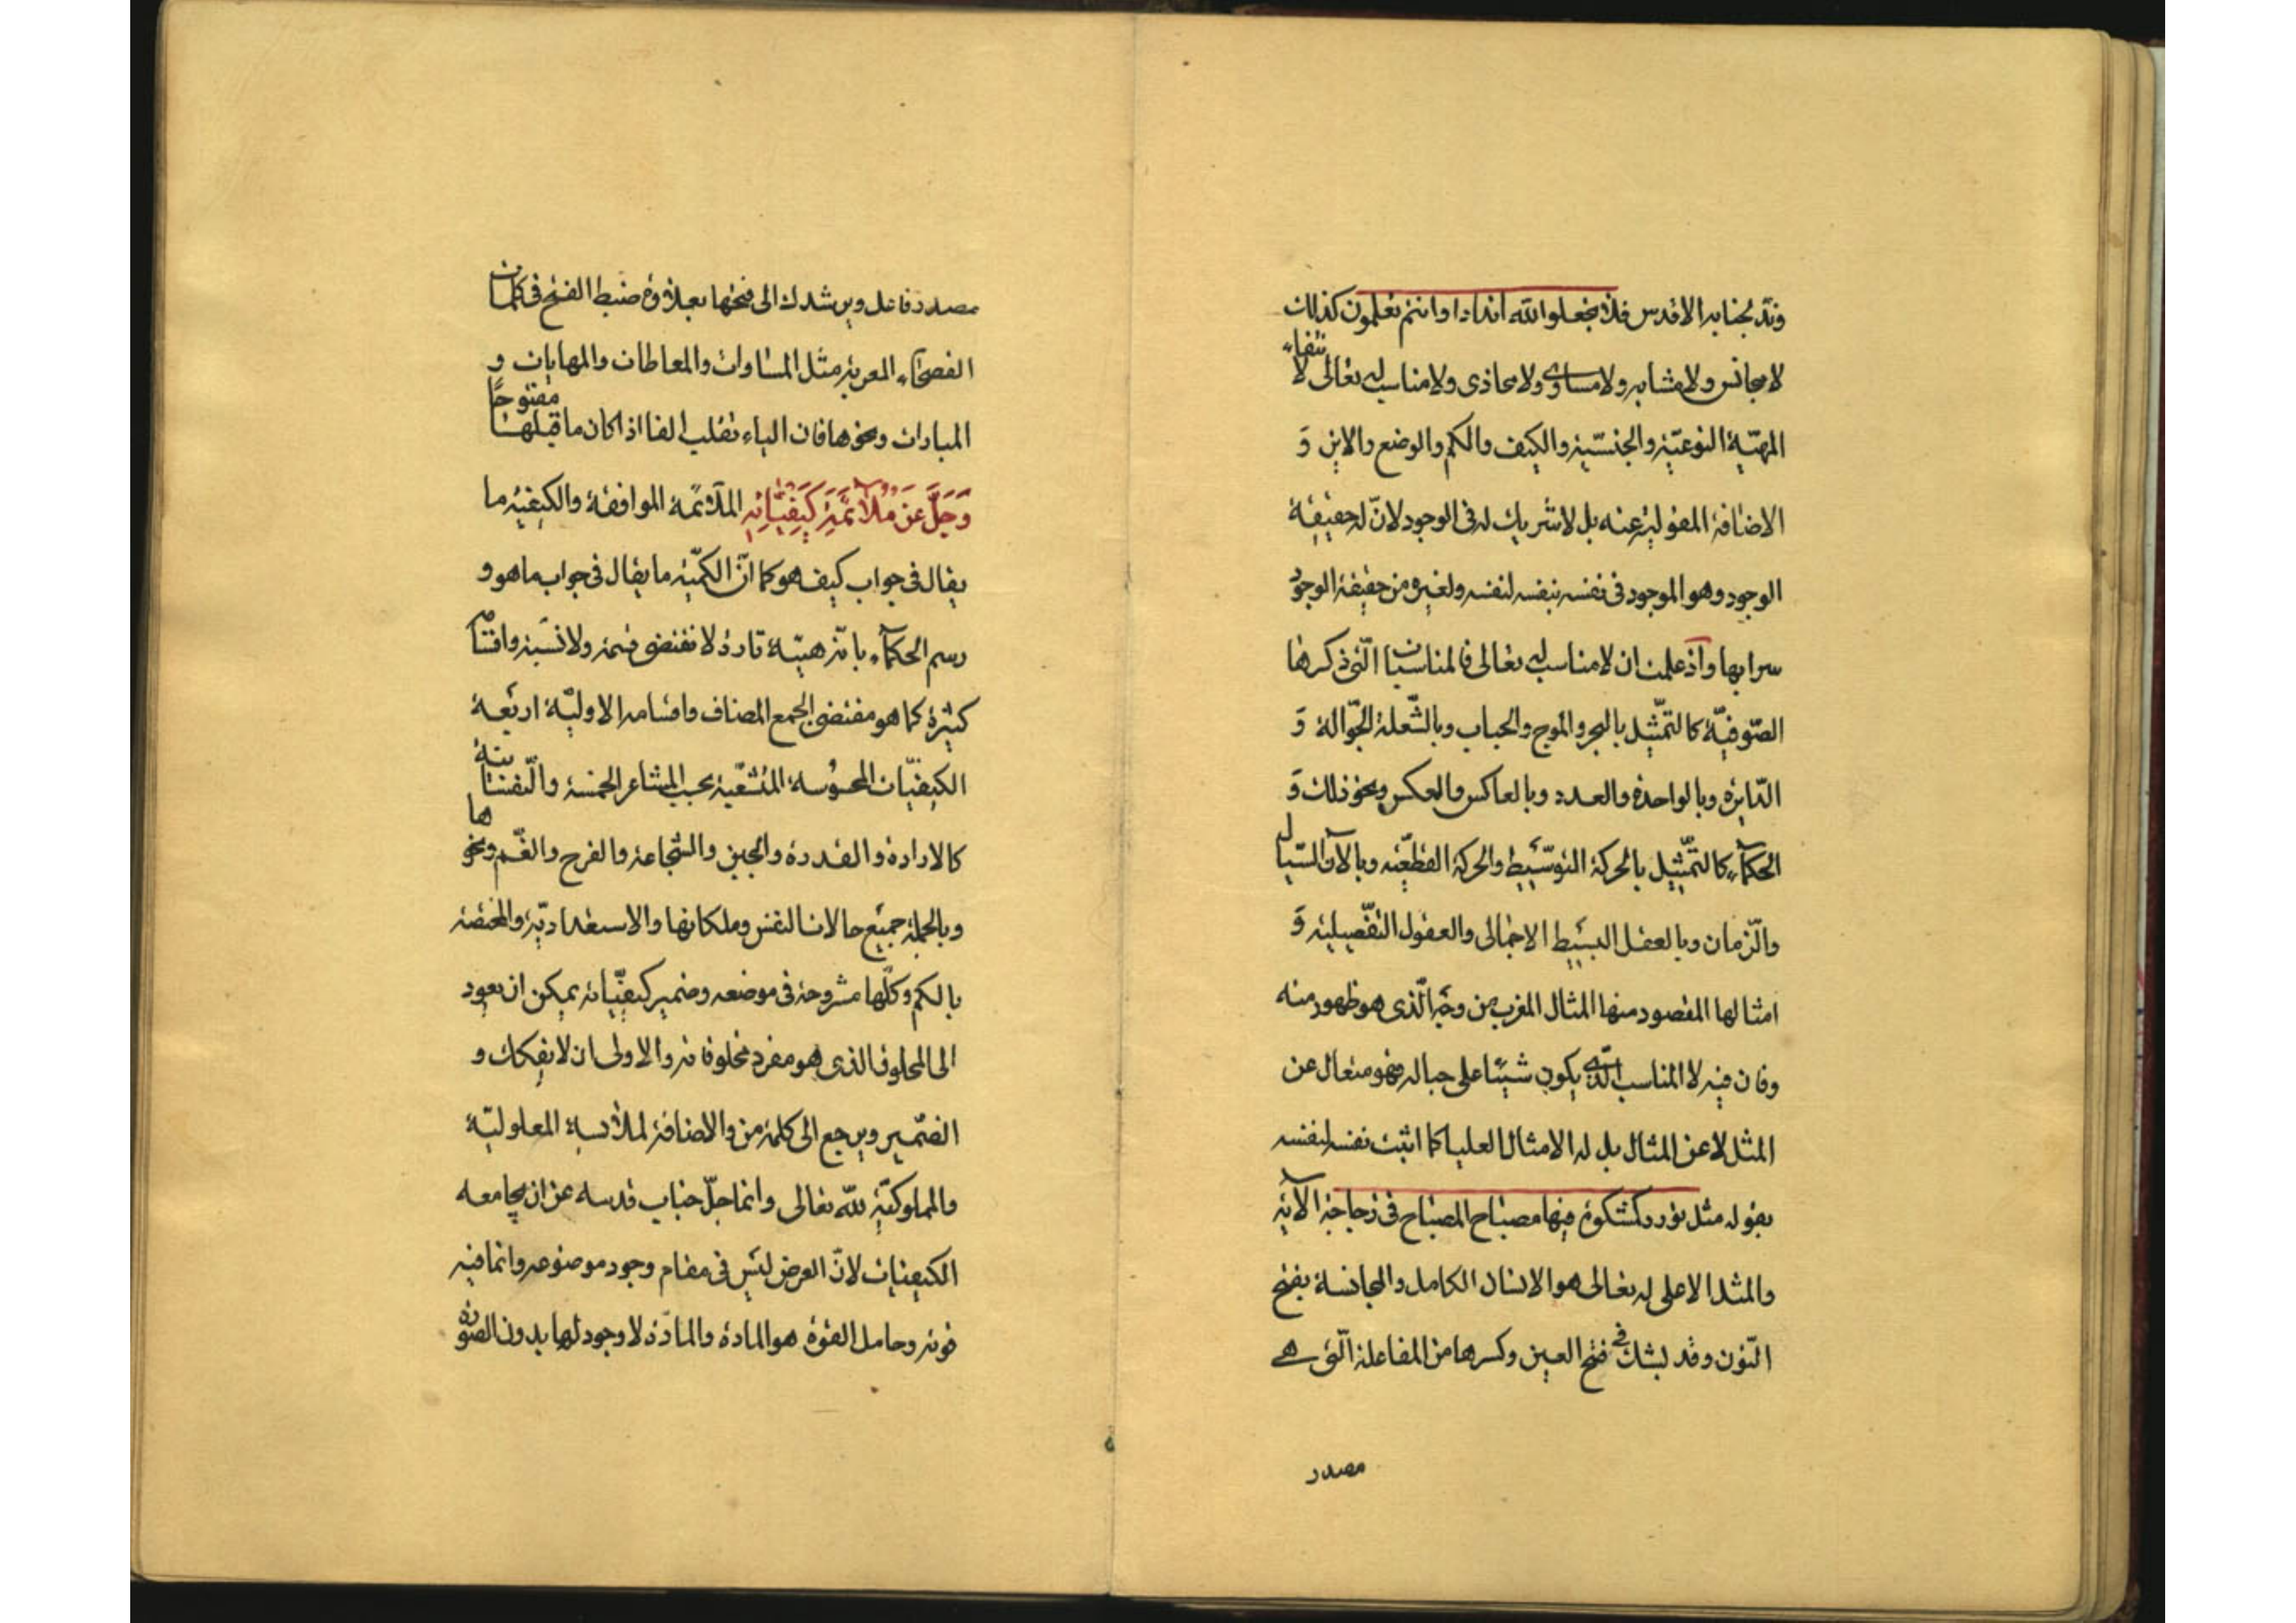 وندّ بجنابه الاقدس فلا تجعلوا لله اندادا وانتم تعلمون كذلك
لا مجانس ولا مشابه ولا مساوى ولا محاذى ولا مناسب له تعالى لانتفاء
المهيّة النوعيّة والجنسيّة والكيف والكم والوضع والاين و
الاضافة المقولية عنه بل لا شريك له فى الوجود لانّ له حقيقة
الوجود وهو الموجود فى نفسه بنفسه لنفسه ولغيره من حقيقة الوجود
سرابها واذ علمت ان لا مناسب له تعالى فالمناسبات الّتى ذكرها
الصّوفيّة كالتمثيل بالبحر والموج والحباب وبالشّعلة الجوّالة و
الدّايرة وبالواحدة والعدد وبالعاكس والعكس ونحو ذلك و
الحكمآء كالتمثيل بالحركة التوسّطيه والحركة القطعيّه وبالآن السّيال
والزّمان وبالعقل البسيط الاجمالى والعقول التفصيلية و
امثالها المقصود منها المثال المقرب من وجه الّذى هو ظهور منه
وفان فيه لا المناسب الّذى يكون شيئا على حياله فهو متعال عن
المثل لا عن المثال بل له الامثال العليا كما اثبت نفسه لنفسه
بقوله مثل نوره كمشكوة فيها مصباح المصباح فى زجاجة الآية
والمثل الاعلى له تعالى هو الانسان الكامل والمجانسة بفتح
النّون وقد يشك فى فتح العين وكسرها من المفاعلة الّتى هى
مصدر
مصدر فاعل ويرشدك الى فتحها بعلاوة ضبط الفتح فى كلمات
الفصحآء المعربة مثل المساوات والمعاطات والمهابات و
المبارات ونحوها فان الياء تقلب الفا اذا كان ما قبلها مفتوحًا
وَجَلَّ عَنْ مُلائَمَةِ كَيْفِيّاتِهِ الملائمة الموافقة والكيفيّة ما
يقال فى جواب كيف هو كما انّ الكميّة ما يقال فى جواب ما هو و
رسم الحكمآء بانّه هيئة قارة لا تقتضى قسمة ولا نسبة واقسام
كثيرة كما هو مقتضى الجمع المضاف واقسامه الاوليّة اربعة
الكيفيّات المحسوسة المتشعّبة بحسب المشاعر الخمسة والنّفسانية
كالارادة والقدرة والجبن والشجاعة والفرح والغّم ونحوها
وبالجملة جميع حالات النفس وملكاتها والاستعداديّة والمختصّة
بالكم وكلّها مشروحة فى موضعه وضمير كيفيّاته يمكن ان يعود
الى المخلوق الذى هو مفرد مخلوقاته والاولى ان لا يفكك و
الضّمير ويرجع الى كلمة من والاضافة لملابسة المعلوليّة
والمملوكيّة لله تعالى وانما جلّ جناب قدسه عن ان يجامعه
الكيفيات لانّ العرض ليس فى مقام وجود موضوعه وانما فيه
قوته وحامل القوة هو المادة والمادّة لا وجود لها بدون الصّورة